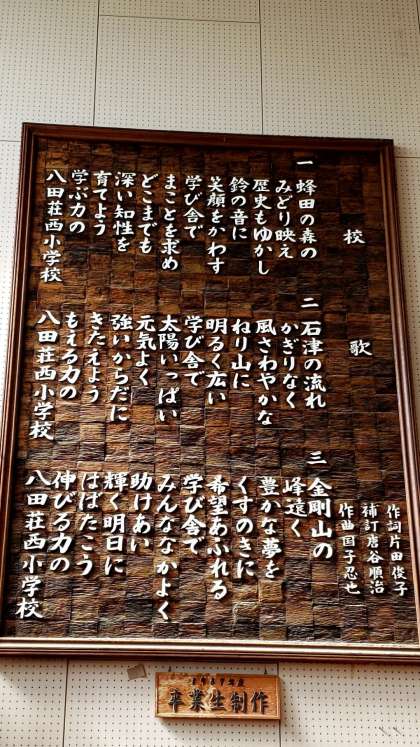 校歌
作詞 片田俊子
補訂 唐谷順治
作曲 国子忍也
一 蜂田の森の
みどり映え
歴史もゆかし
鈴の音に
笑顔をかわす
学び舎で
まことを求め
どこまでも
深い知性を
育てよう
学ぶ力の
八田荘西小学校
二 石津の流れ
かぎりなく
風さわやかな
ねり山に
明るく広い
学び舎で
太陽いっぱい
元気よく
強いからだに
きたえよう
もえる力の
八田荘西小学校
三 金剛山の
峰遠く
豊かな夢を
くすのきに
希望あふれる
学び舎で
みんななかよく
助けあい
輝く明日に
はばたこう
伸びる力の
八田荘西小学校
1989年度
卒業生制作